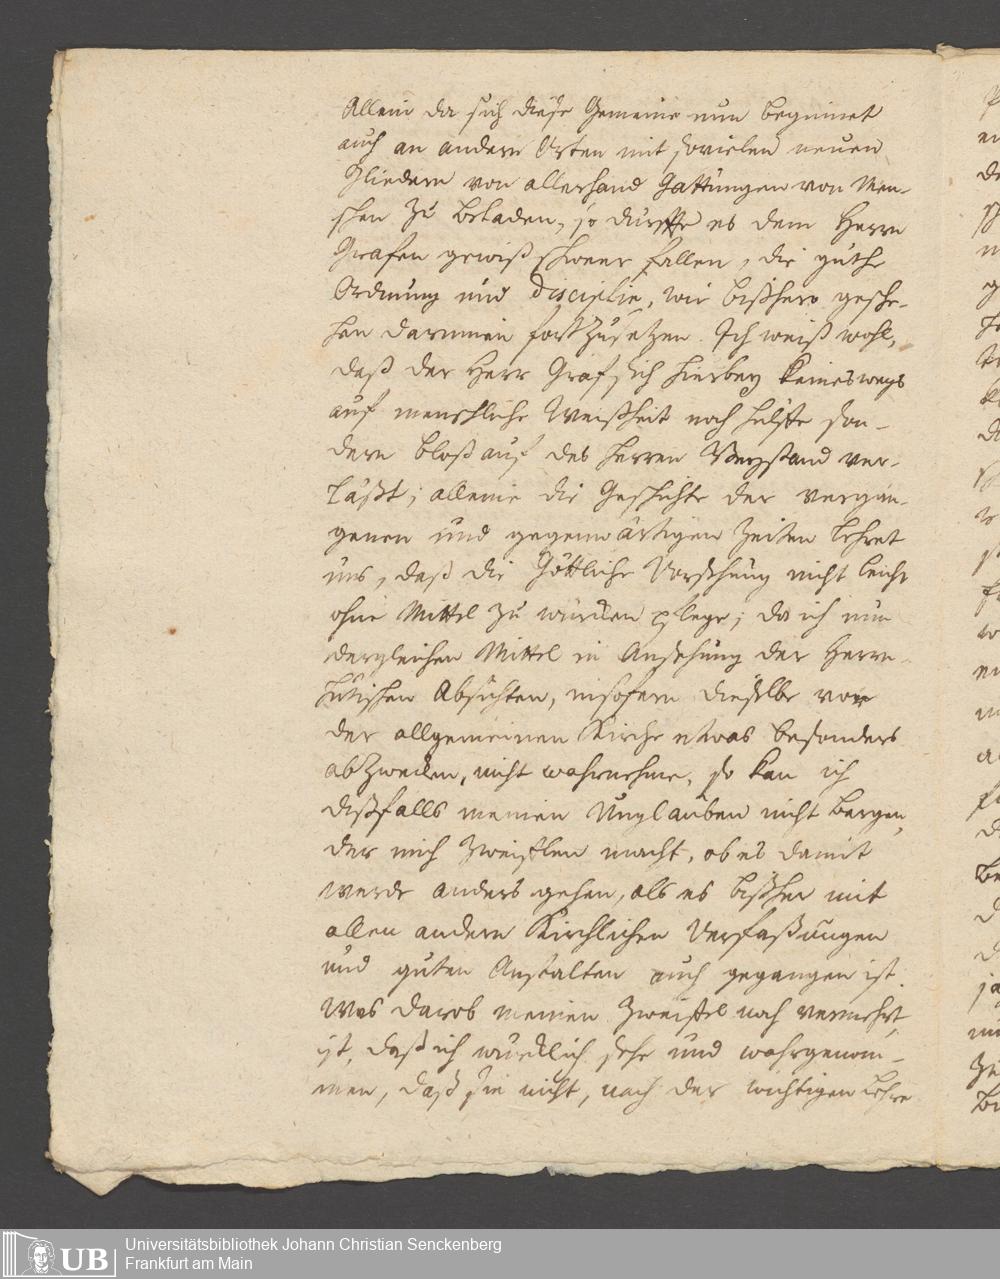 Allein da sich diese Gemeine nun beginnet
auch an andern Orten mit sovielen neuen
Gliedern von allerhand Gattungen von Men-
schen zu beladen, so durffte es dem Herrn
Grafen gewiß schwer fallen, die guthe
Ordnung und Disciplin, wie bißhero gesche-
hen darinnen fortzusetzen. Ich weiß wohl,
daß der Herr Graf sich hierbey keineswegs
auf menschliche Weißheit noch hülffe son-
dern bloß auf des Herren Beystand ver-
läßt; alleine die Geschichte der vergan-
genen und gegenwärtigen Zeiten lehret
uns, daß die Göttliche Vorsehung nicht leicht
ohne Mittel zu würcken pflege; da ich nun
dergleichen Mittel in Ansehung der Herrn-
hutischen Absichten, insofern dieselbe von
der allgemeinen Kirche etwas besonders
abzwecken, nicht wahrnehme, so kan ich
dißfalls meinen Unglauben nicht bergen,
der mich zweiflen macht, ob es damit
werde anders gehen, als es bißher mit
allen andern Kirchlichen Verfaßungen
und guten Anstalten auch gegangen ist.
Was darob meinen Zweiffel noch vermehrt,
ist, daß ich würcklich sehe und wahrgenom-
men, daß sie nicht, nach der wichtigen Lehre
Universitätsbibliothek Johann Christian Senckenberg
UB Frankfurt am Main